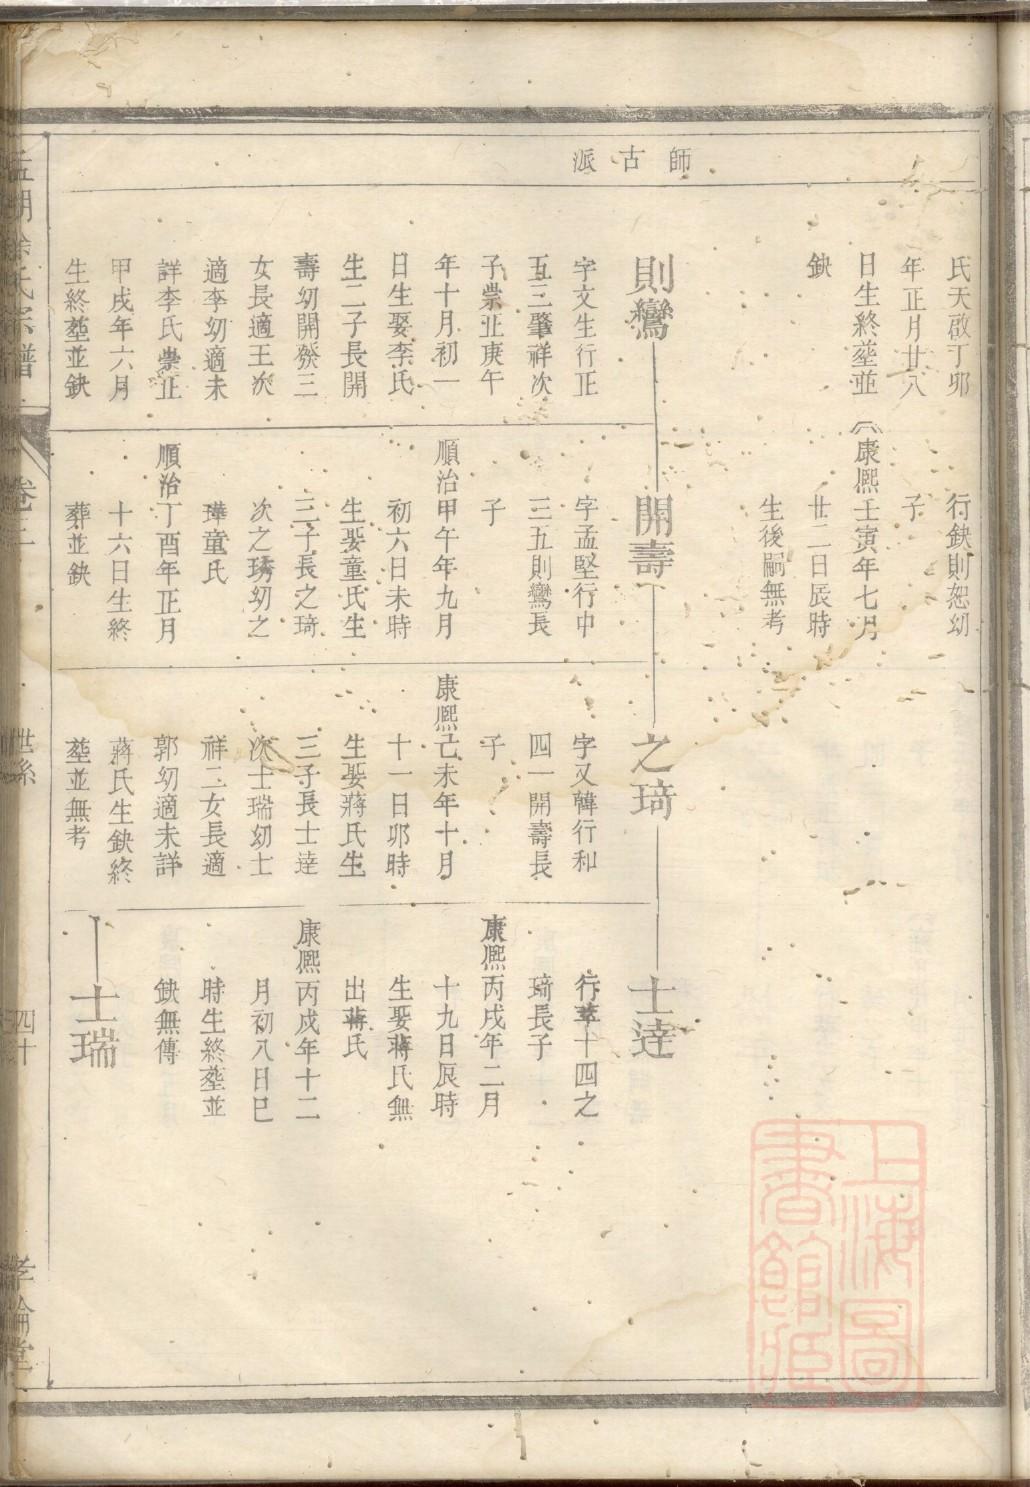 師古派
氏天啟丁卯
年正月廿八
日生終塟並
缺
則鸞
字文生行正
五三肇祥次
子崇正庚午
年十月初一
日生娶李氏
生二子長開
壽幼開發三
女長適王次
適李幼適未
詳李氏崇正
甲戌年六月
生終塟並缺
行缺則恕幼
子
康熙壬寅年七月
廿二日辰時
生後嗣無考
開壽
字孟堅行中
三五則鸞長
子
順治甲午年九月
初六日未時
生娶童氏生
三子長之琦
次之琇幼之
璍童氏
順治丁酉年正月
十六日生終
葬並缺
之琦
字又韓行和
四一開壽長
子
康熙己未年十月
十一日卯時
生娶蔣氏生
三子長士達
次士瑞幼士
祥二女長適
郭幼適未詳
蔣氏生缺終
塟並無考
士達
行萃十四之
琦長子
康熙丙戌年二月
十九日辰時
生娶蔣氏無
出蔣氏
康熙丙戌年十二
月初八日巳
時生終塟並
缺無傳
士瑞
徐氏宗譜
卷三
世系
四十
孝倫堂
上海圖
書館藏